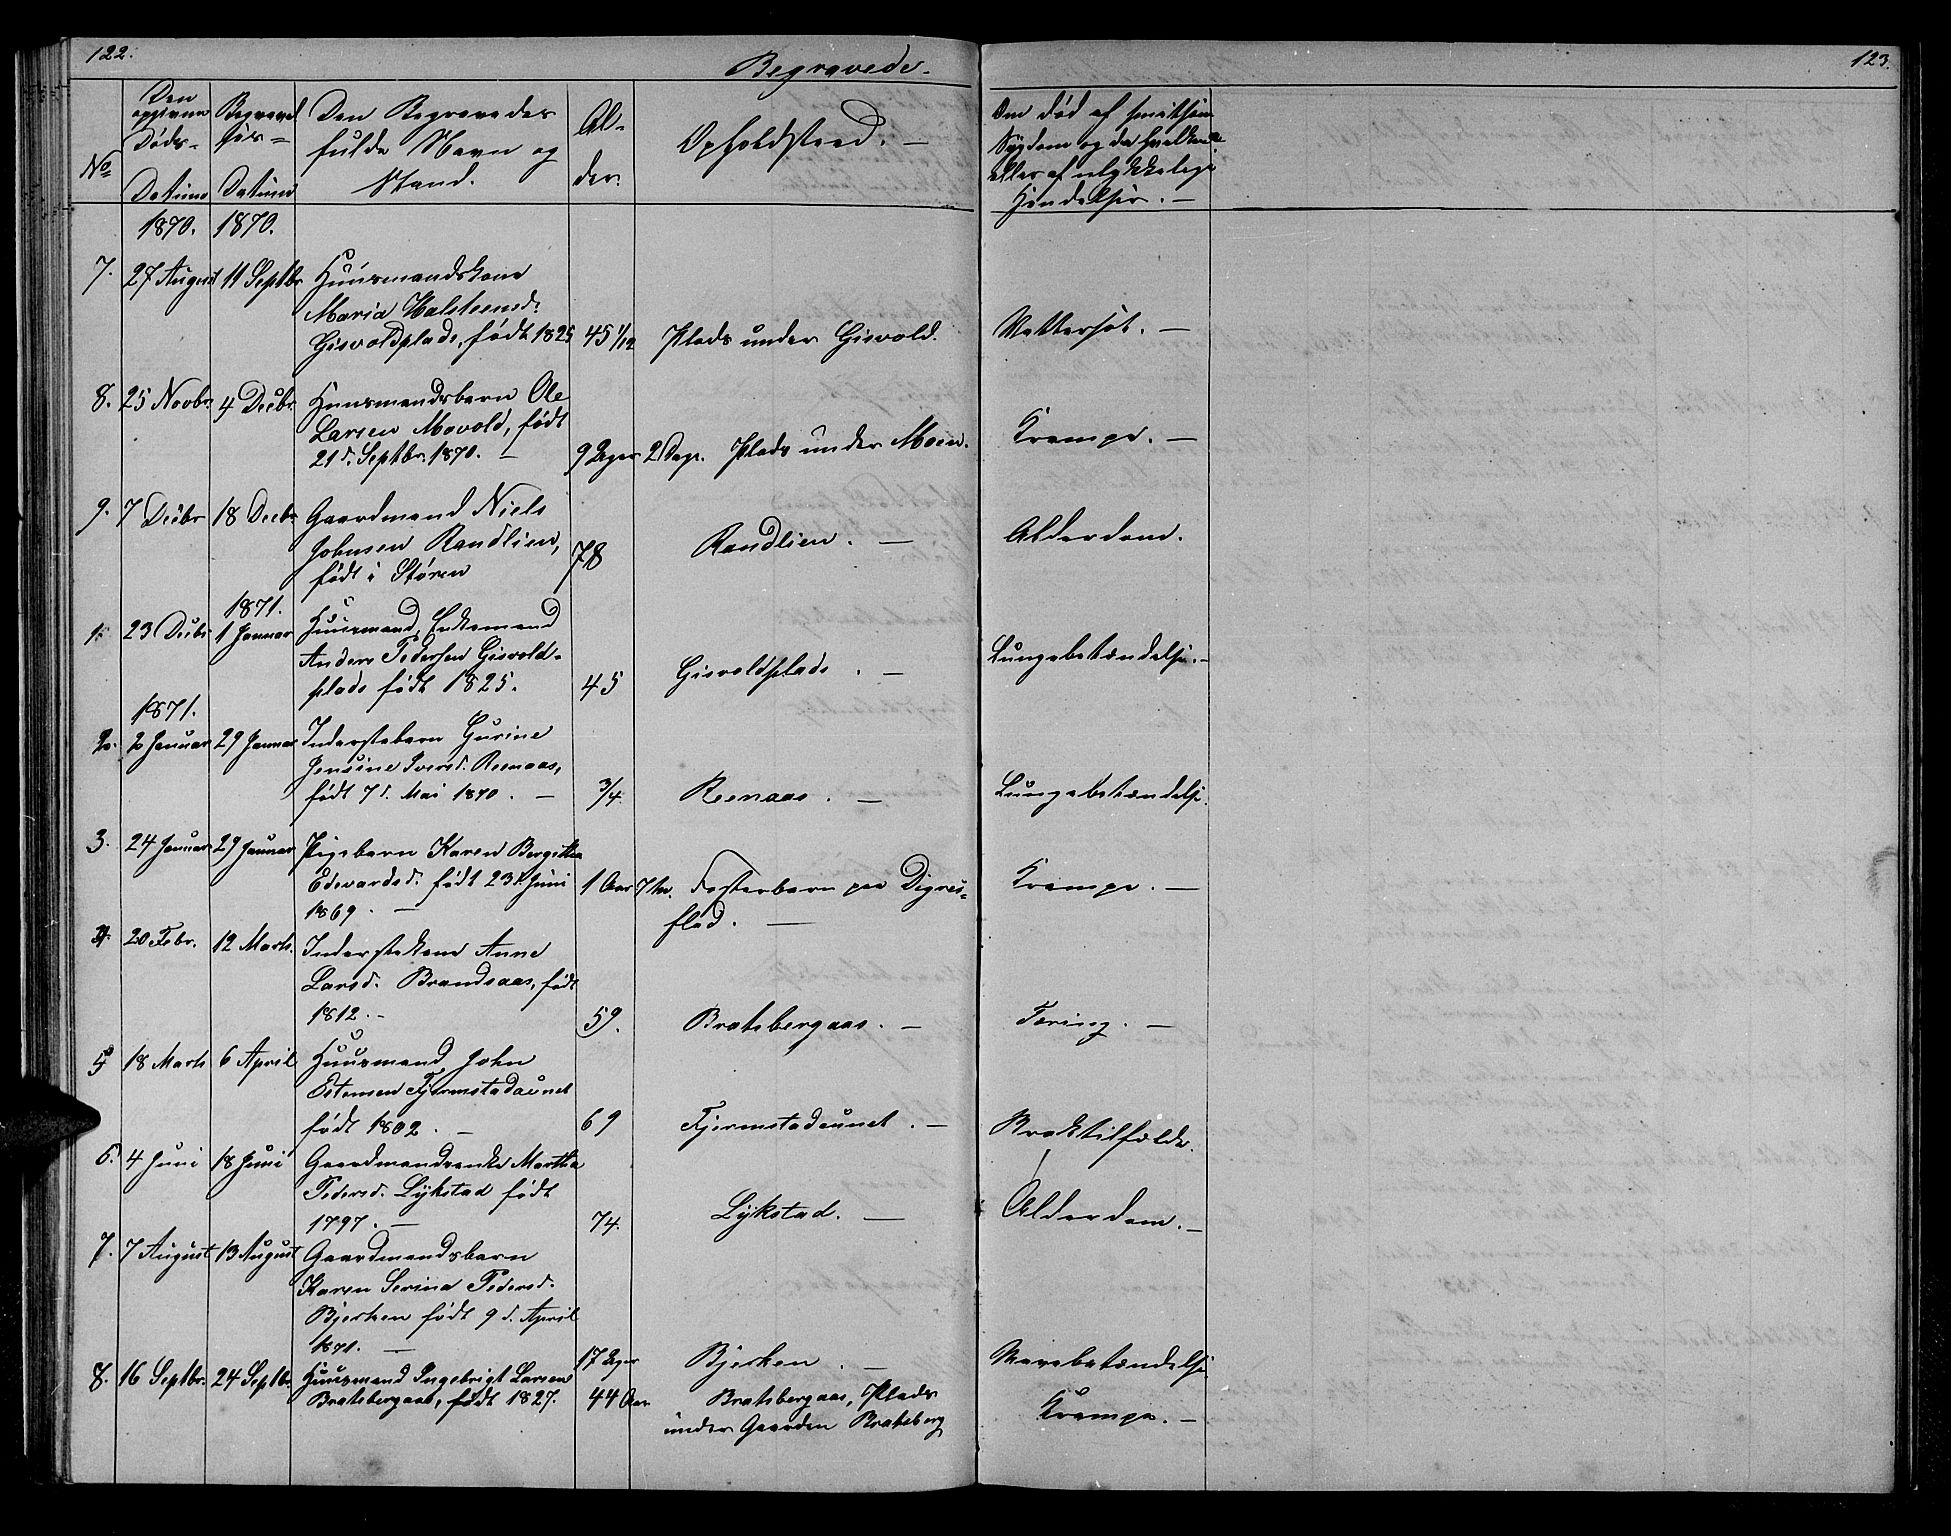 122.
Begravede.
123.
No
Den opgivne Døds-Datum
Begravelses-Datum
Den Begravedes fulde Navn og Stand.
Alder.
Opholdssted. —
Om død af smitsom Sygdom og da hvilken eller af ulykkelige Hændelser. —
1870. 1870.
7. 27 August 11 Septbr Huusmandskone
Maria Halsteensd.
Gisvoldplads, født 1825 45 1/12 Plads under Gisvold. Vattersot. —
8. 25 Novbr. 4 Decbr Huusmandsbarn Ole
Larsen Movold, født
21d. Septbr. 1870. — 9 Uger 2 Dage. Plads under Moen. Krampe. —
9. 7 Decbr 18 Decbr Gaardmand Niels
Johnsen Randlien,
født i Støren 78 Randlien. — Alderdom.
1871.
1. 23 Decbr 1 Januar Huusmand, Enkemand
Anders Pedersen Gisvold-
plads født 1825. 45 Gisvoldplads. — Lungebetændelse. —
1871.
2. 2 Januar 29 Januar Inderstebarn Gurine
Jensine Iversd. Reenaas,
født 7d. Mai 1870. — 3/4 Reenaas. — Lungebetændelse.
3. 24 Januar 29 Januar Pigebarn Karen Bergitha
Edevardsd. født 23d. Juni
1869. — 1 Aar 7 M. Fosterbarn paa Digres-
flad. — Krampe. —
4. 20 Febr. 12 Marts. Inderstekone Anne
Larsd. Brandsaas, født
1812. - 59. Bratsbergaas. — Tæring. —
5 18 Marts 6 April Huusmand John
Estensen Fjermstadaunet
født 1802. — 69 Fjermstadaunet. — Braktilfælde.
6. 4 Juni 18 Juni Gaardmandsenke Martha
Pedersd. Lykstad født
1797. — 74. Lykstad. — Alderdom. —
7. 7 August 13 August Gaardmandsbarn
Karen Serina Pedersd.
Bjerken født 9d. April
1871. — 17 Uger Bjerken. —
8. 16 Septbr. 24 Septbr. Huusmand Ingebrigt Larsen
Bratsbergaas, født 1827. 44 Aar Bratsbergaas, Plads
under Gaarden Bratsberg Krampe. —